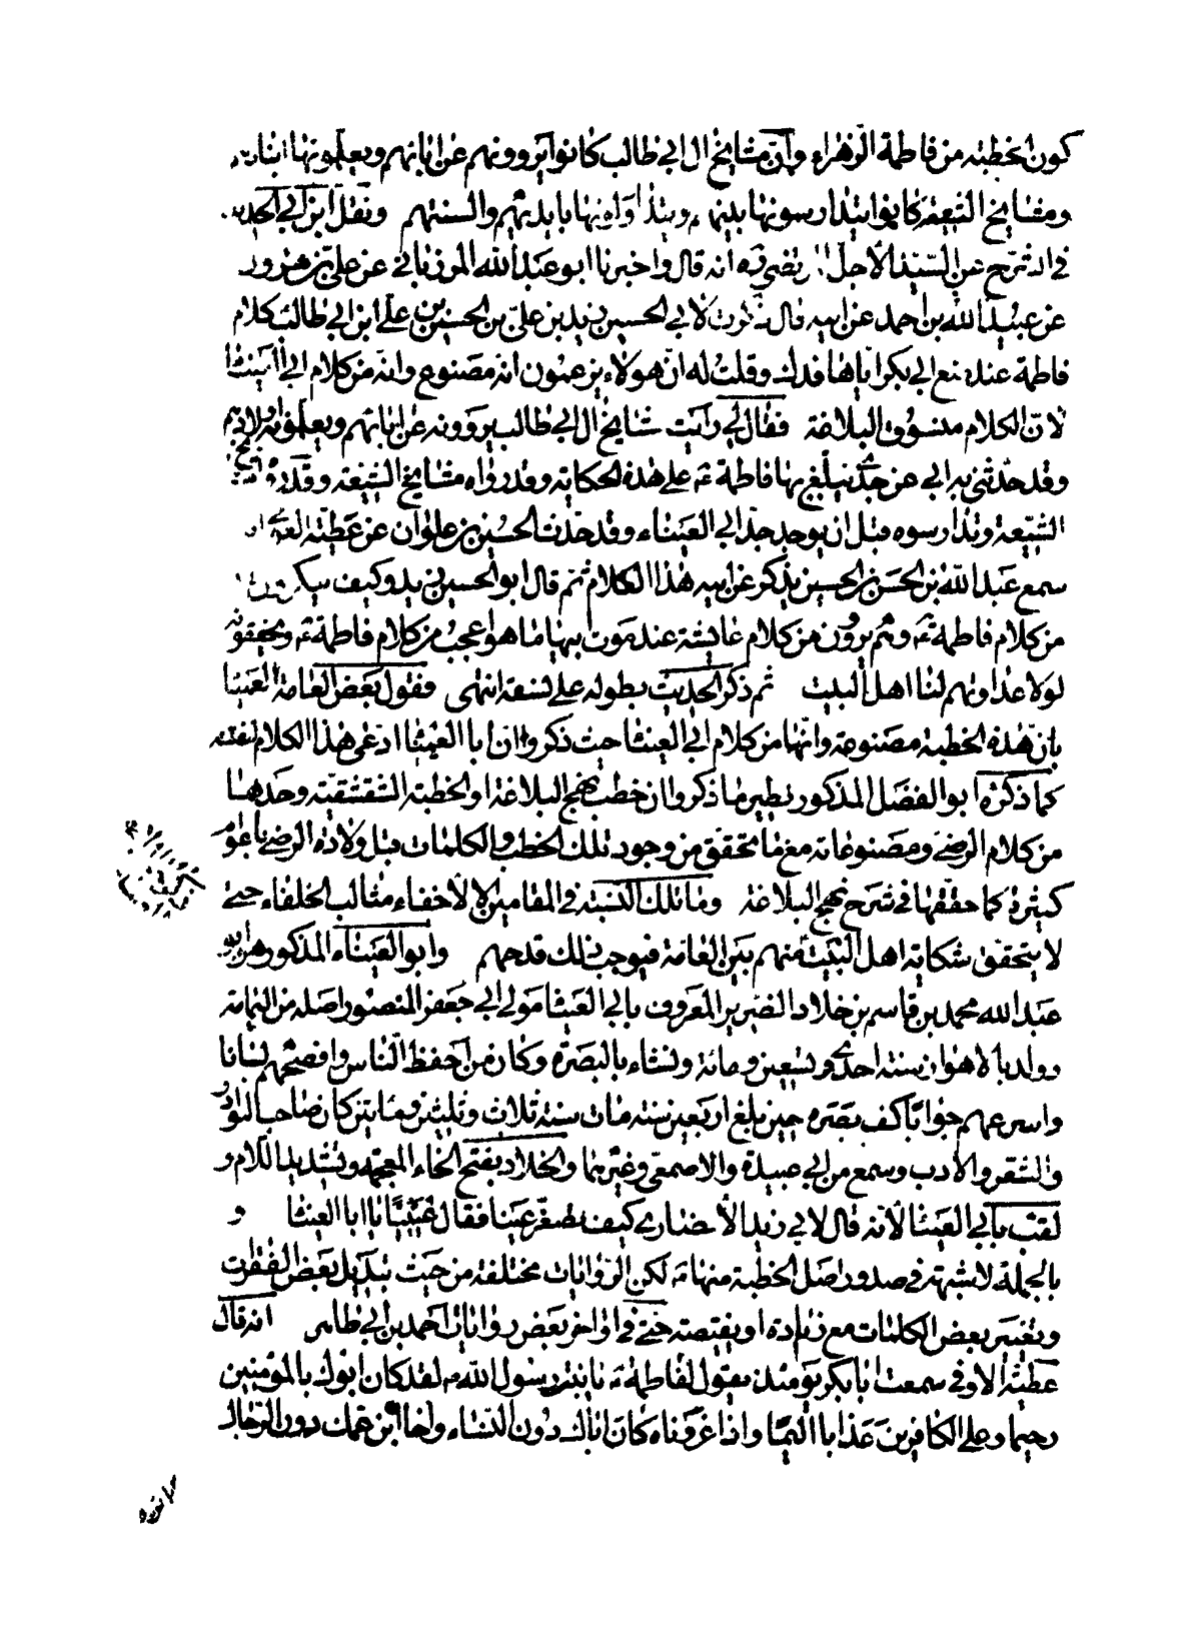 كون الخطبة من فاطمة الزهراء وان مشايخ ال ابي طالب كانوا يروونهم عن ابائهم ويعلمونها ابنائهم
ومشايخ الشيعة كانوا يتدارسونها بينهم ويتداولونها بايديهم والسنتهم ونقل ابن ابي الحديد
في الشرح عن السيد الاجل المرتضى ره انه قال واخبرنا ابو عبدالله المرزباني عن علي بن هرون
عن عبيد الله بن احمد عن ابيه قال ذكرت لابي الحسين زيد بن علي بن الحسين بن علي ابن ابي طالب كلام
فاطمة عند منع ابي بكر اياها فدك وقلت له ان هؤلاء يزعمون انه مصنوع وانه من كلام ابي العيناء
لان الكلام منسوق البلاغة فقال لي رايت مشايخ ال ابي طالب يروونه عن ابائهم ويعلمونه اولادهم
وقد حدثني به ابي عن جدي يبلغ بها فاطمة ع على هذه الحكاية وقد رواه مشايخ الشيعة وقد
الشيعة وتدارسوه قبل ان يوجد جد ابي العيناء وقد حدث الحسين بن علوان عن عطية العوفي انه
سمع عبد الله بن الحسن بن الحسين يذكر عن ابيه هذا الكلام ثم قال ابو الحسين زيد وكيف ينكرون
من كلام فاطمة ع وهم يروون من كلام عايشة عند موت ابيها ما هو اعجب من كلام فاطمة ع ويحققونه
لولا عداوتهم لنا اهل البيت ثم ذكر الحديث بطوله على نسقه انتهى فقول بعض العامة العينا
بان هذه الخطبة مصنوعة وانها من كلام ابي العينا حيث ذكروا ان ابا العينا ادعى هذا الكلام لنفسه
كما ذكره ابو الفضل المذكور نظير ما ذكروا ان خطب نهج البلاغة او الخطبة الشقشقية وحدها
من كلام الرضي ومصنوعاته مع ما تحقق من وجود تلك الخطب والكلمات قبل ولادة الرضي باعوام
كثيرة كما حققها في شرح نهج البلاغة وما تلك النسبة في المقامين الا لاخفاء مثالب الخلفاء حتى
لا يتحقق شكاية اهل البيت منهم بين العامة فيوجب ذلك قدحهم وابو العيناء المذكور هو ابو
عبد الله محمد بن قاسم بن خلاد الضرير المعروف بابي العينا مولى ابي جعفر المنصور اصله من اليمامة
وولد بالاهواز سنة احدى وتسعين ومائة ونشاء بالبصرة وكان من احفظ الناس وافصحهم لسانا
واسرعهم جوابا كف بصره حين بلغ اربعين سنة مات سنة ثلاث وثلثين ومايتين كان صاحب النوادر
والشعر والادب وسمع من ابي عبيدة والاصمعي وغيرهما والخلاد بفتح الخاء المعجمة وتشديد اللام و
لقب بابي العينا لانه قال لابي زيد الانصاري كيف تصغر عينا فقال عيينا يا ابا العينا و
بالجملة لا شبهة في صدور اصل الخطبة منها ع لكن الروايات مختلفة من حيث تبديل بعض الفقرات
وتغيير بعض الكلمات مع زيادة او نقيصة حتى في اواخر بعض روايات احمد بن ابي طاهر انه قال
عطية الاوفى سمعت ابا بكر يومئذ يقول لفاطمة ع يا بنت رسول الله ص لقد كان ابوك بالمؤمنين
رحيما وعلى الكافرين عذابا اليما واذا عزوناه كان اباك دون النساء واخا ابن عمك دون الرجال